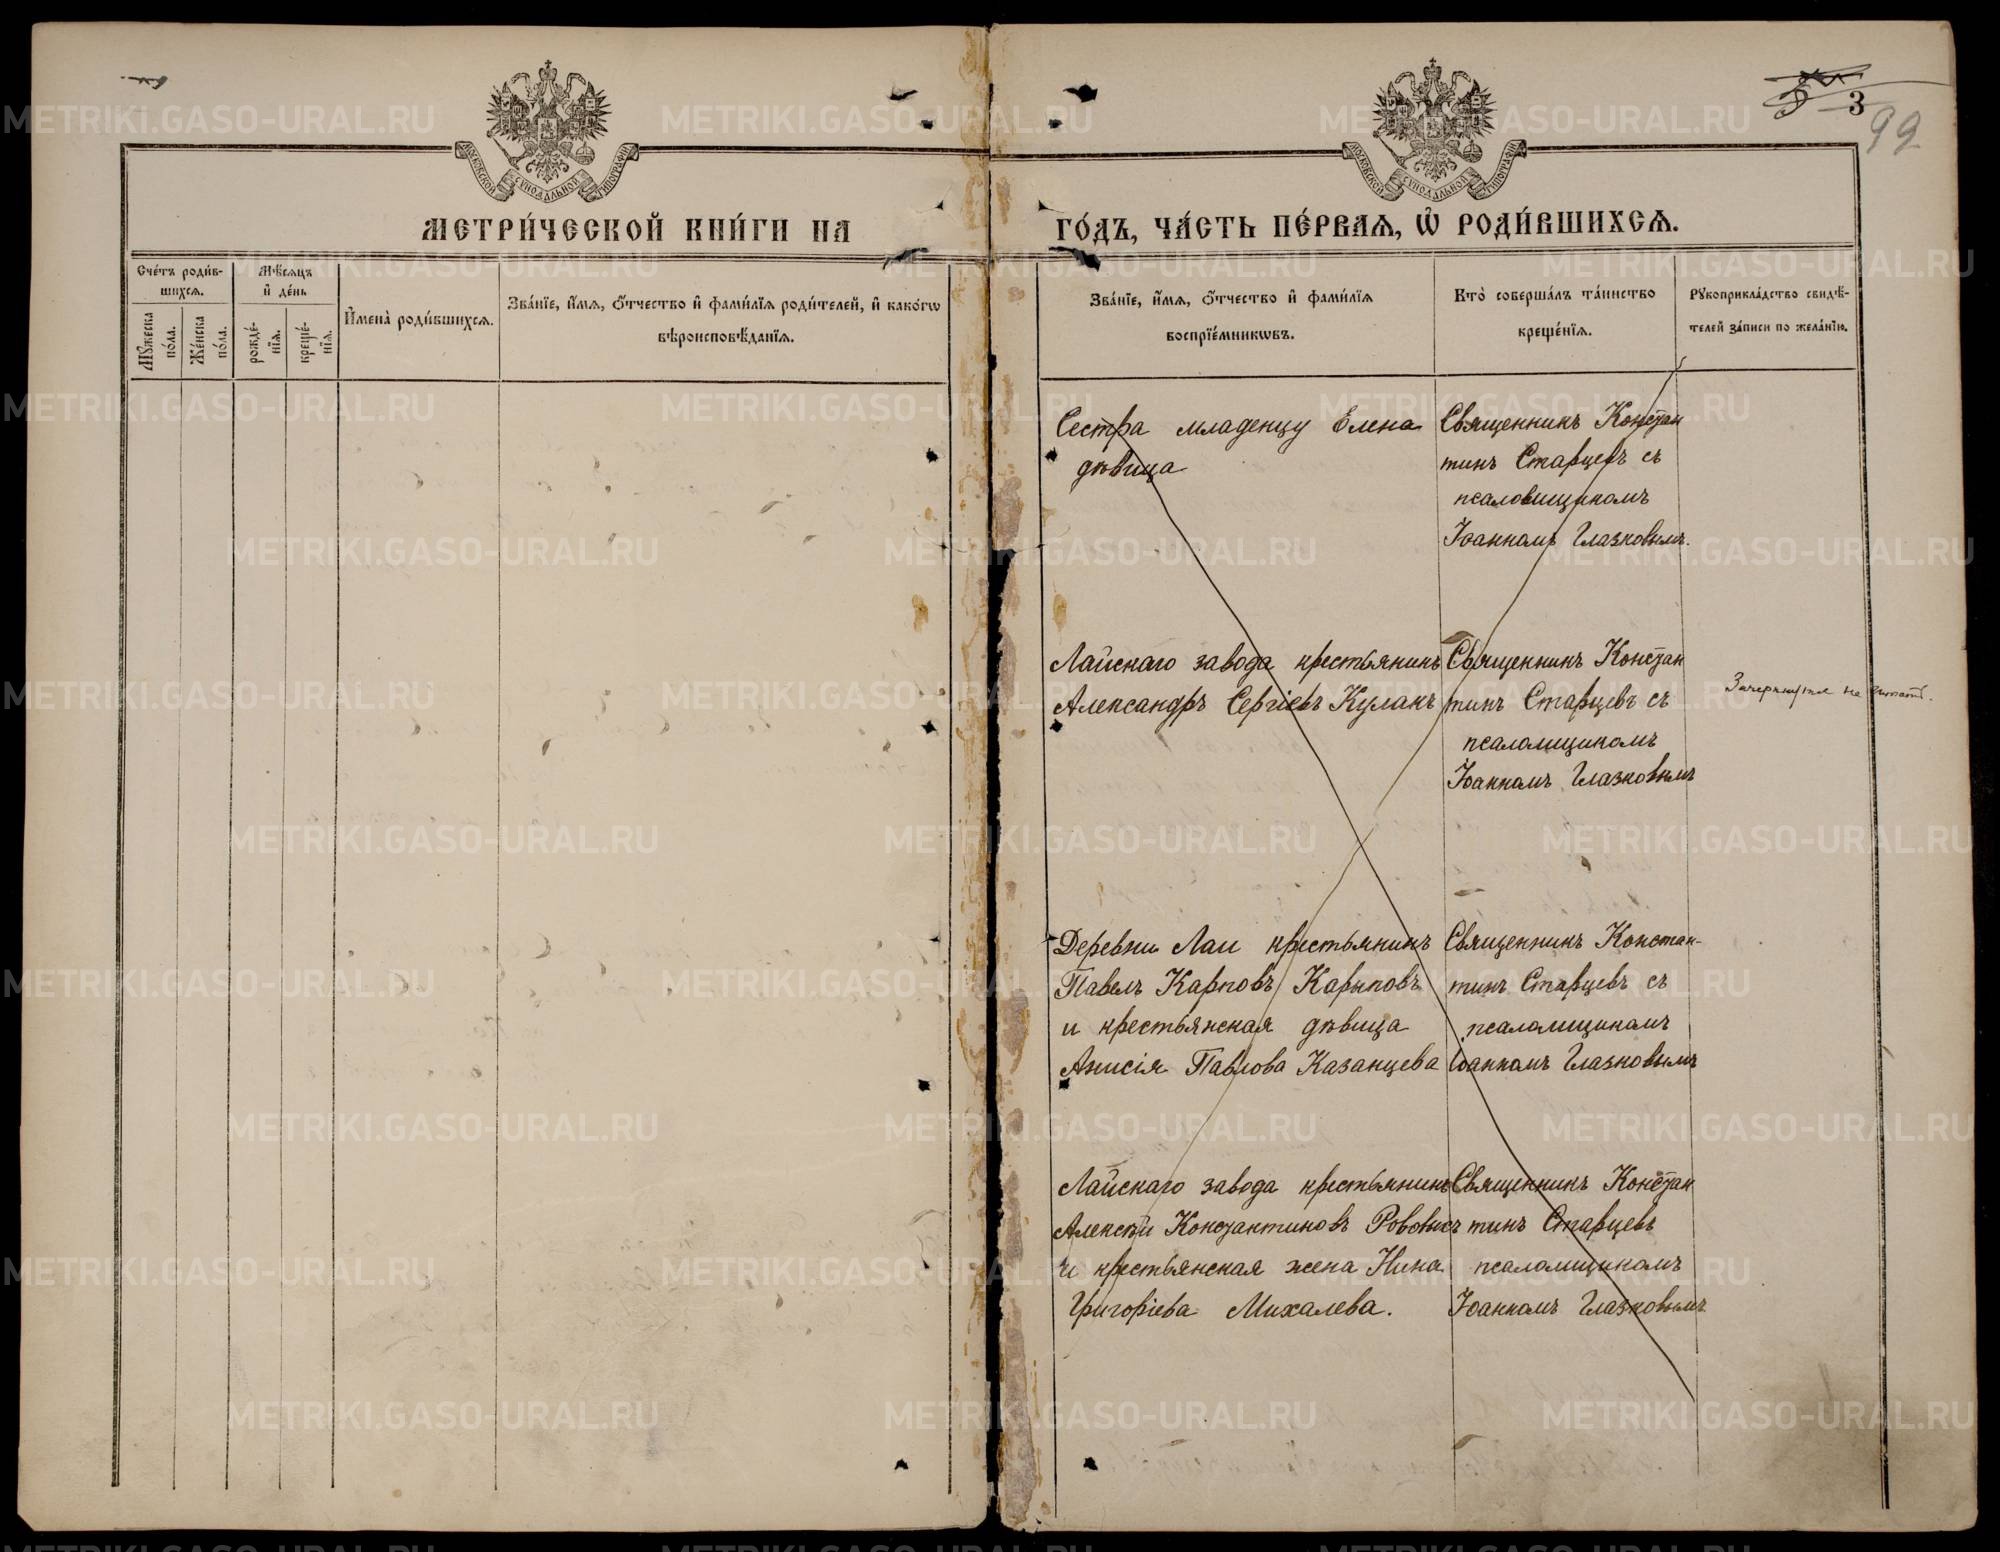 3
99
МОСКОВСКОЙ СѴНОДАЛЬНОЙ ТИПОГРАФІИ
МОСКОВСКОЙ СѴНОДАЛЬНОЙ ТИПОГРАФІИ
МЕТРИ́ЧЕСКОЙ КНИ́ГИ НА
ГО́ДЪ, ЧА́СТЬ ПЕ́РВАѦ, Ѡ҆ РОДИ́ВШИХСѦ.
Сче́тъ роди́в-
шихсѧ.
Мꙋ́жеска
по́ла.
Же́нска
по́ла.
Мѣ́сѧцъ
и҆ де́нь
рожде́-
нїѧ.
креще́-
нїѧ.
И҆мена̀ роди́вшихсѧ.
Зва́нїе, и҆́мѧ, ѻ҆́тчество и҆ фами́лїѧ роди́телей, и҆ како́гѡ
вѣроисповѣ́данїѧ.
Зва́нїе, и҆́мѧ, ѻ҆́тчество и҆ фами́лїѧ
воспрїе́мникѡвъ.
Кто̀ соверша́лъ та́инство
креще́нїѧ.
Рꙋкоприкла́дство свидѣ́-
телей за́писи по жела́нїю.
Сестра младенцу Елена
дѣвица
Священникъ Констан
тинъ Старцевъ съ
псаломщикомъ
Іоанномъ Глазковымъ.
Лайскаго завода крестьянинъ
Александръ Сергіевъ Кулакъ
Священникъ Констан
тинъ Старцевъ съ
псаломщикомъ
Іоанномъ Глазковымъ
Зачеркнутое не читать.
Деревни Лаи крестьянинъ
Павелъ Карповъ Карыповъ
и крестьянская дѣвица
Анисія Павлова Казанцева
Священникъ Констан-
тинъ Старцевъ съ
псаломщикомъ
Іоанномъ Глазковымъ
Лайскаго завода крестьянинъ
Алексѣй Константиновъ
и крестьянская жена Нина
Григоріева Михалева.
Священникъ Констан
тинъ Старцевъ
псаломщикомъ
Іоанномъ Глазковымъ
METRIKI.GASO-URAL.RU